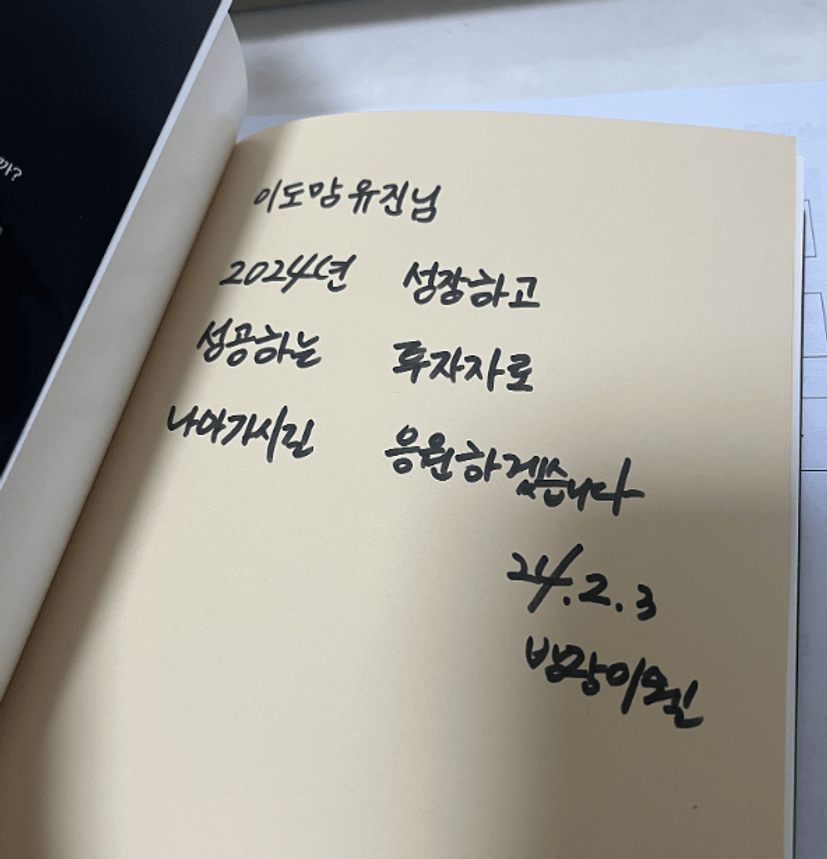 가?
이도맘 유진님
2024년 성장하고
성공하는 투자자로
나아가시길 응원하겠습니다
24.2.3